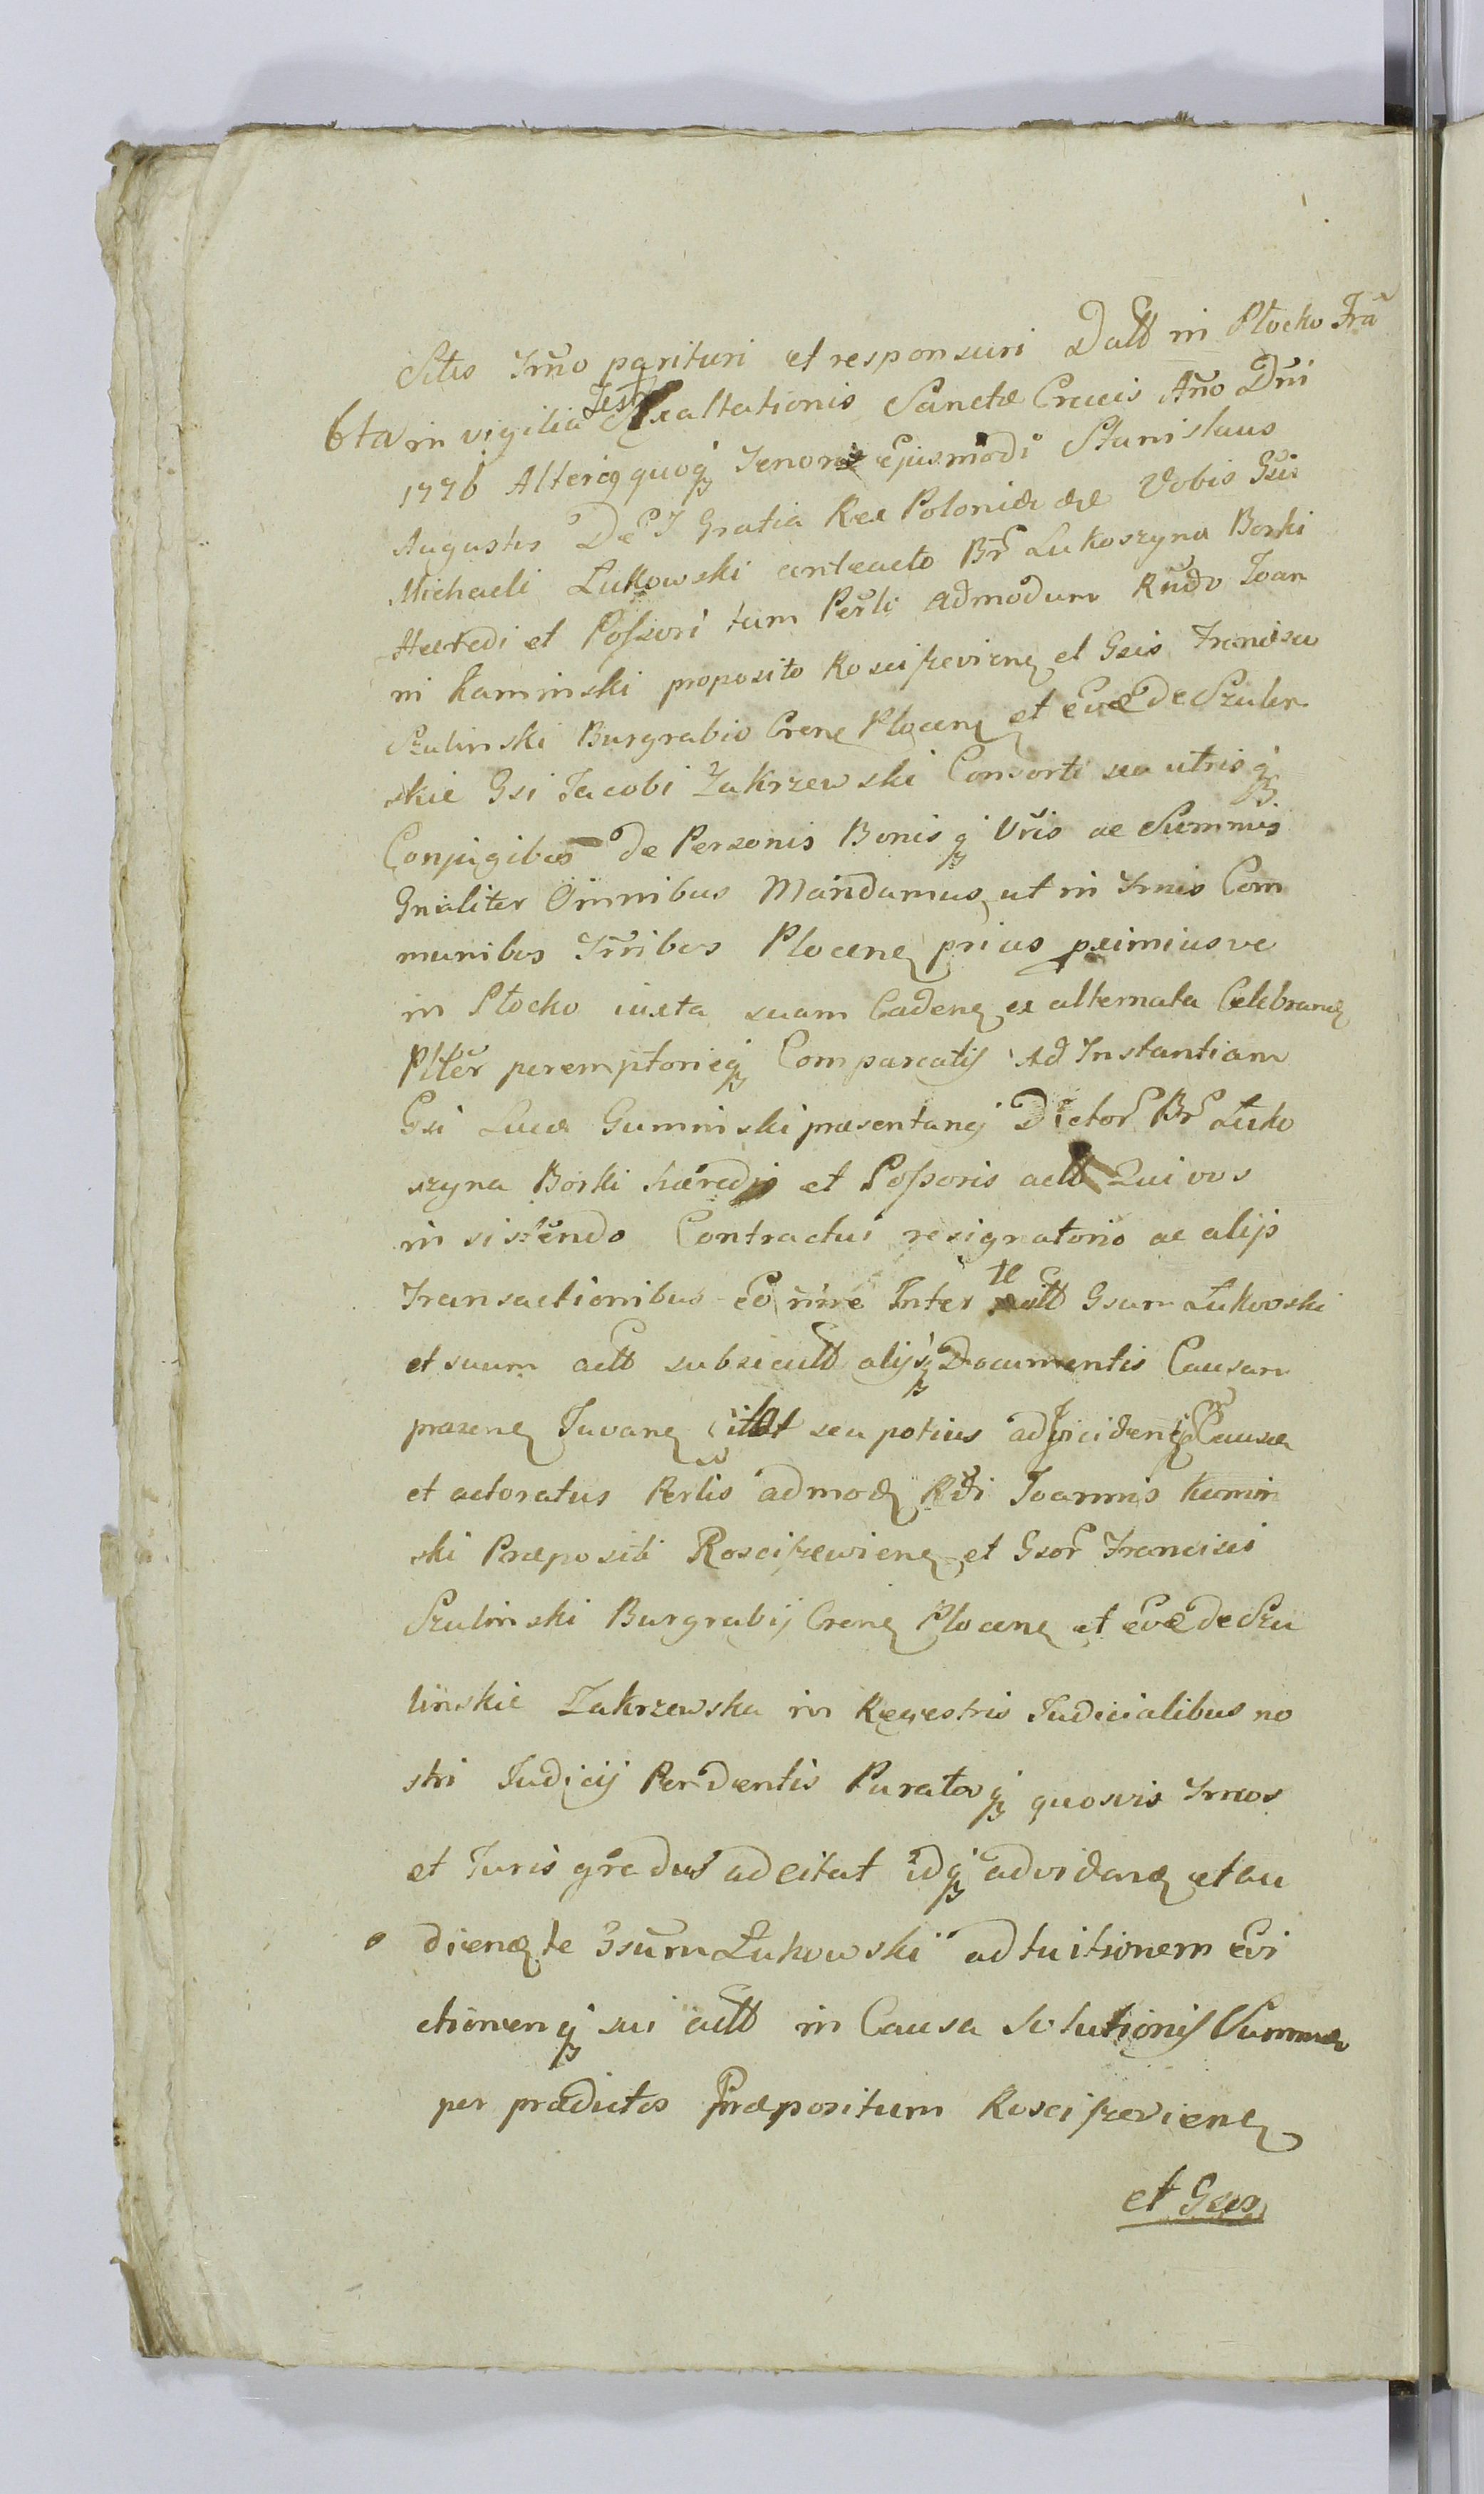 Sitis Trno parituri et responsuri Datt in Płocko Fra
6ta in vigilia Festi Exaltationis Sanctæ Crucis Año Dñi
1776 Alterius quoq Tenoris Ejusmodi Stanislaus
Augustus DEI Gratia Rex Poloniæ &c Vobis Gsis
Michaeli Łukowski anteacto Br Łukoszyna Borki
Hæredi et Possori tum Perli admodum Rndo Joan
ni Kaminski præposito Rosciszevieng et Gsis Francisco
Szulinski Burgrabio Creng Ploceng et Evæ de Szulin
skie Gsi Jacobi Zakrzewski Consorti seu utrisq
Conjugibus de Personis Bonisq Vris ac Summis
Gnaliter Omnibus Mandamus, ut in Trnis Com
munibus Trribus Ploceng prius pximiusve
in Płocko iuxta suam Cadeng ex alternata Celebrang
Plter peremptorieq Compareatis Ad Instantiam
Gsi Lucæ Guminski præsentang Dictor Br Łuko
szyna Borki hæredis et Possoris actt Qui vos
insistendo Contractui resignatorio ac alijs
Transactionibus eo nrre Inter te Gsum Łukowski
et suum actt subsecutt alijsq Documentis Causam
præseng Juvang citat seu potius ad Causæ
et actoratus Perlis admodg Rdi Joannis Kamin
ski Præpositi Rosciszewieng et Gsor Francisci
Szulinski Burgrabij Creng Ploceng et Evæ de Szu
linskie Zakrzewska in Regestris Judicialibus no
stri Judicij Pendentis Paratosq quosvis Trnos
et Juris gradus adcitat idq advidang et au
dieng te Gsum Łukowski ad tuitionem Evi
ctionenq sui actt in Causa Solutionis Summæ
per prædictos Præpositum Roscizevieng
et Gsos